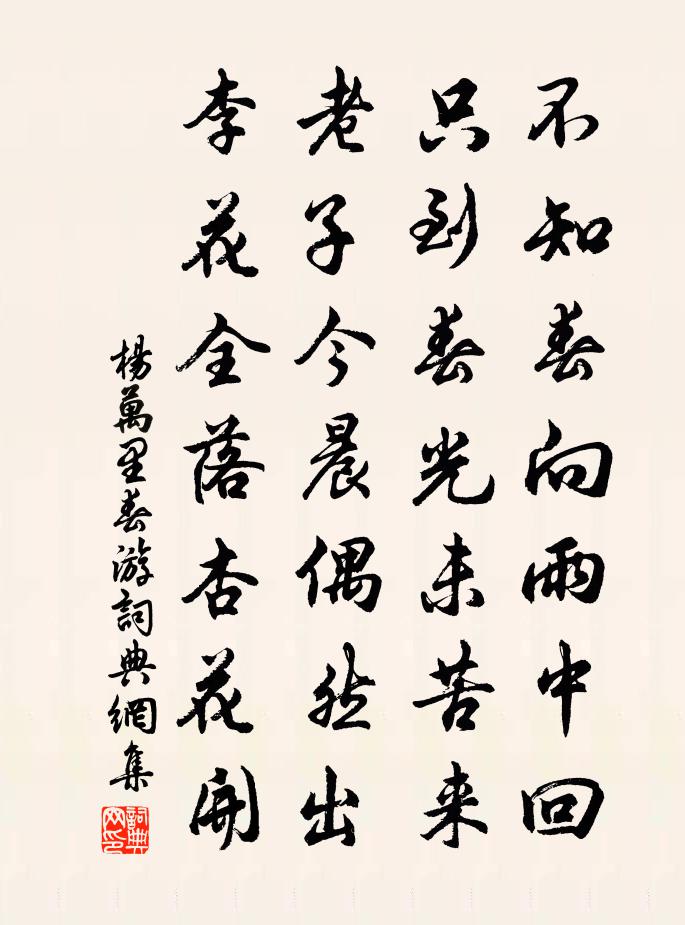 不知春向雨中回
只到春光未苦来
老子今晨偶然出
李花全落杏花開
楊萬里春游詞典網集
詞典網印